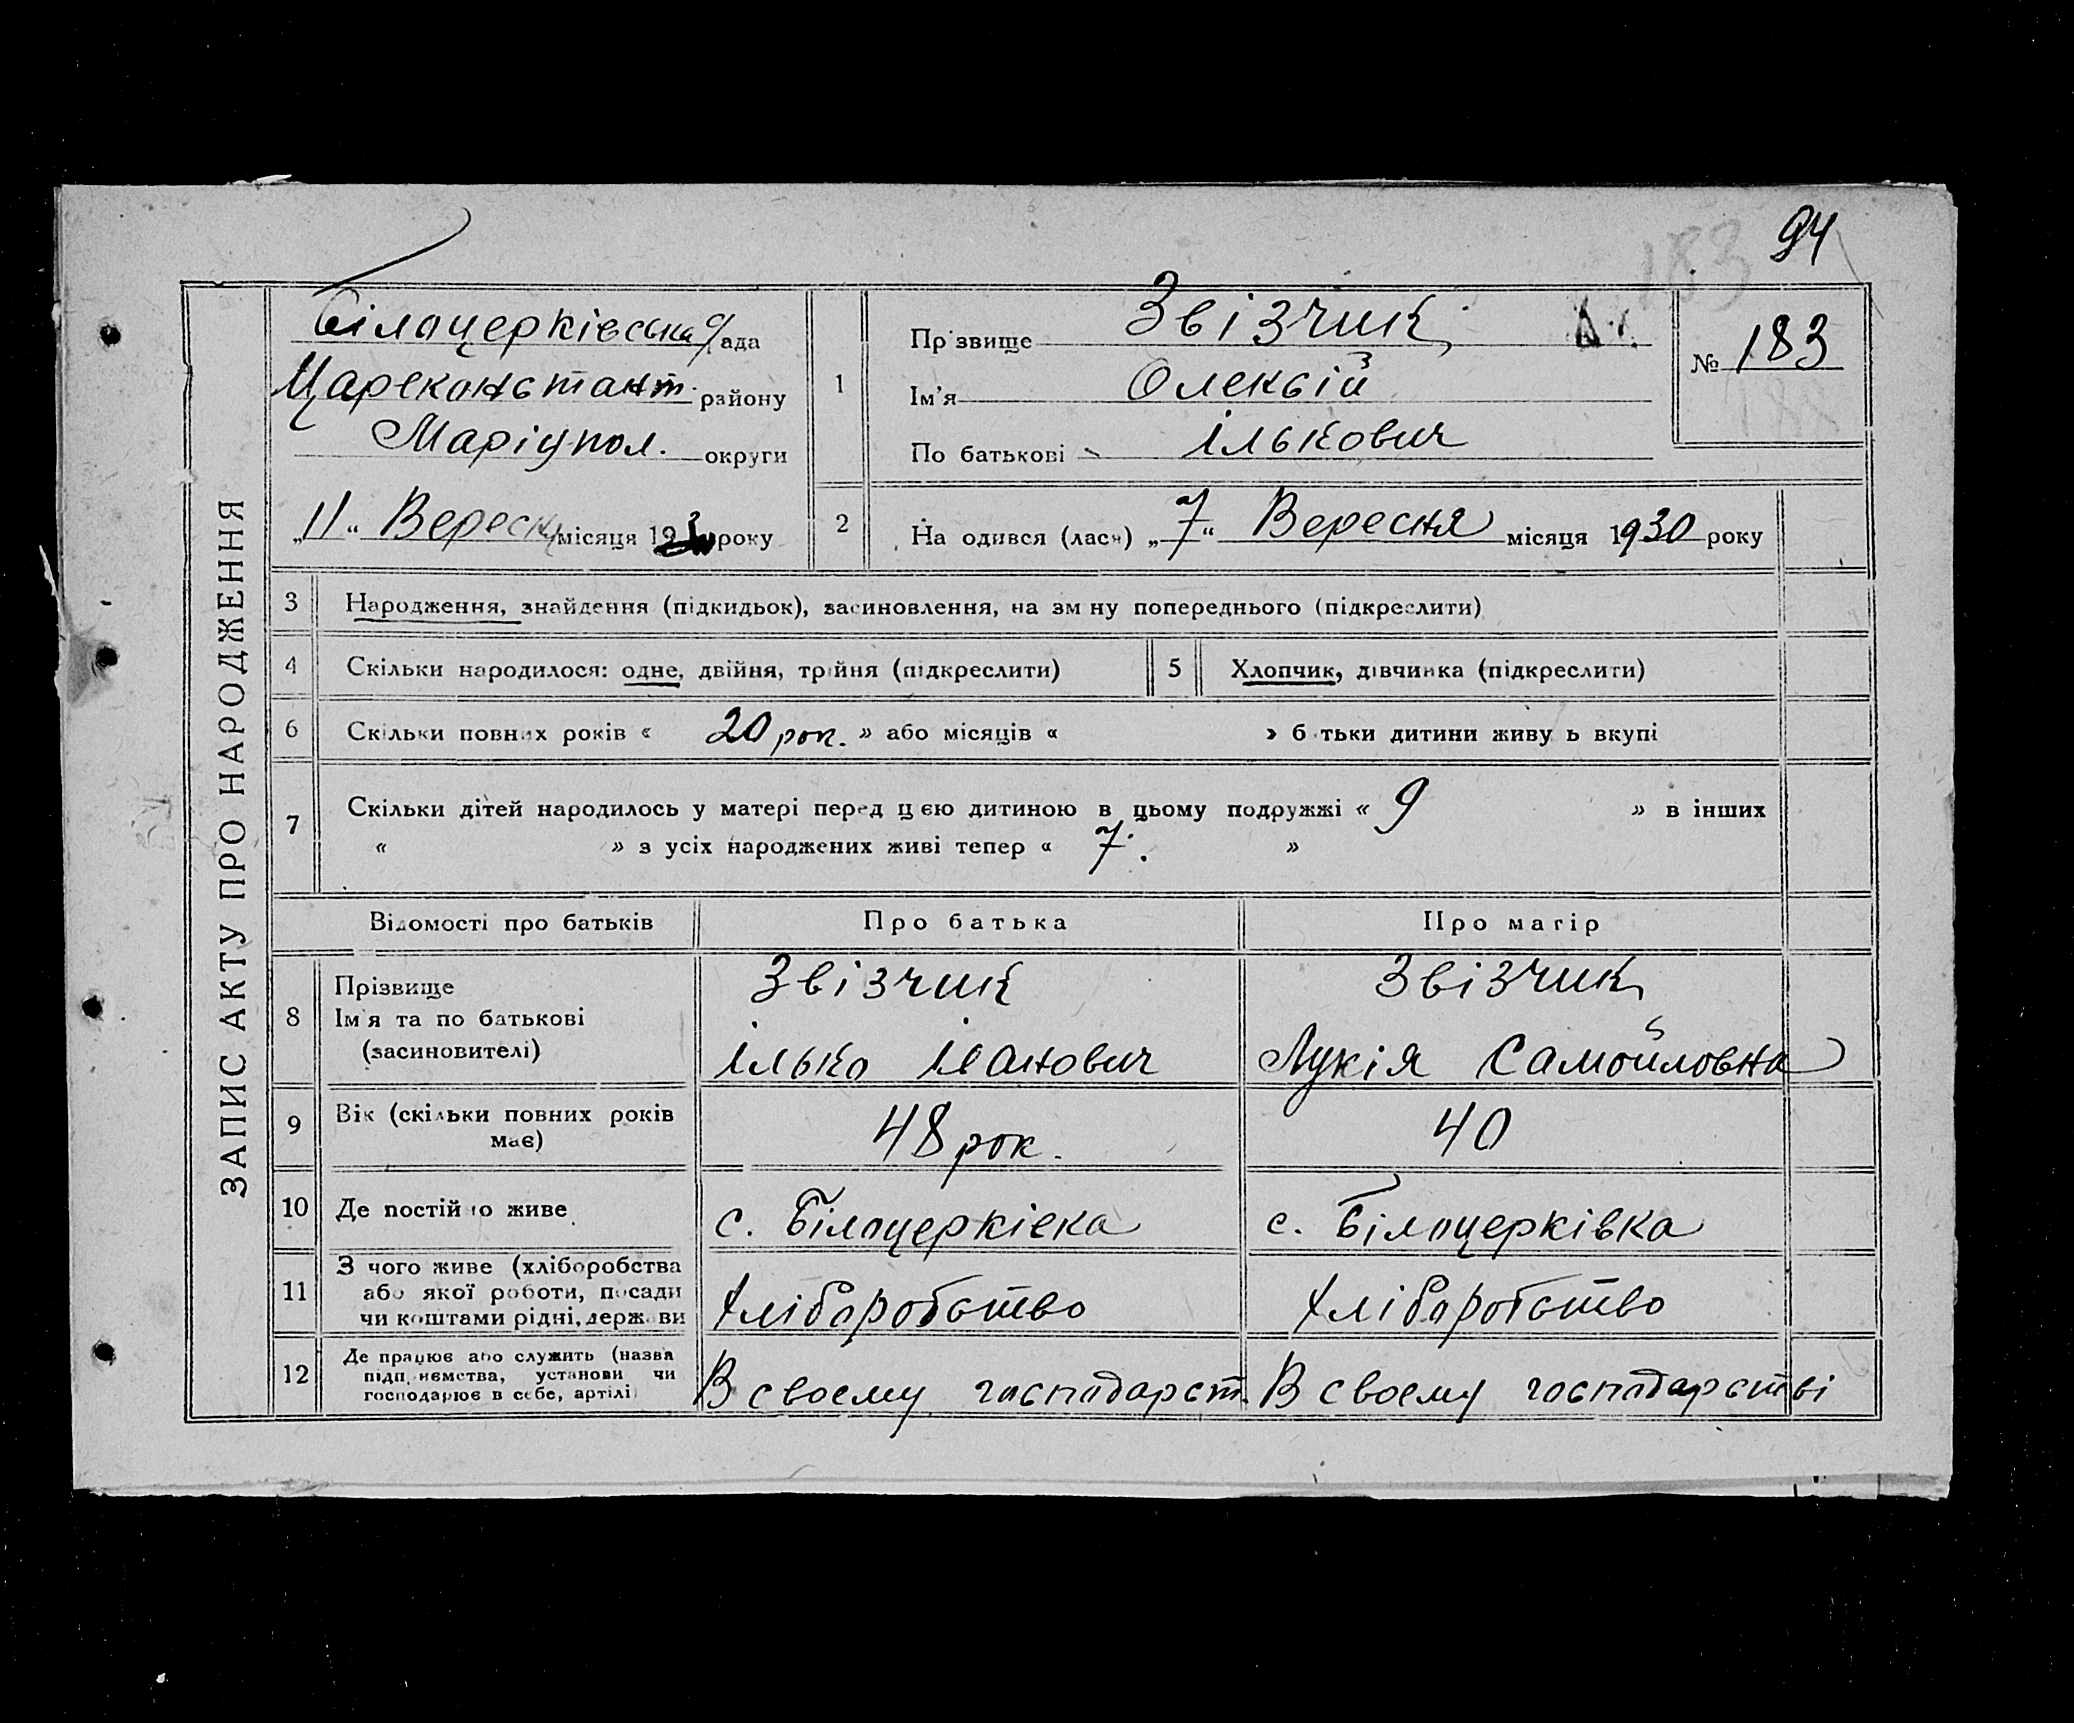 94
183
ЗАПИС АКТУ ПРО НАРОДЖЕННЯ
Білоцерківська рада
Цареконстант. району
Маріупол. округи
„11“ Вересня місяця 1930 року
1
Прізвище Звізчик
Ім'я Олексій
По батькові Ількович
№ 183
2 На одився (лася) „7“ Вересня місяця 1930 року
3 Народження, знайдення (підкидьок), засиновлення, на зм ну попереднього (підкреслити)
4 Скільки народилося: одне, двійня, трійня (підкреслити)
5 Хлопчик, дівчинка (підкреслити)
6 Скільки повних років « 20 рок. » або місяців « » б тьки дитини живу ь вкупі
7 Скільки дітей народилось у матері перед цією дитиною в цьому подружжі « 9 » в інших
« » з усіх народжених живі тепер « 7. »
Відомості про батьків Про батька Про матір
8 Прізвище Звізчик Звізчик
Ім'я та по батькові
(засиновителі) Ілько Іванович Лукія Самойловна
9 Вік (скільки повних років
має) 48 рок. 40
10 Де постійно живе с. Білоцерківка с. Білоцерківка
11 З чого живе (хліборобства
або якої роботи, посади
чи коштами рідні, держави Хліборобство Хліборобство
12 Де працює або служить (назва
підп иємства, установи чи
господарює в себе, артілі) В своему господарст. В своему господарстві